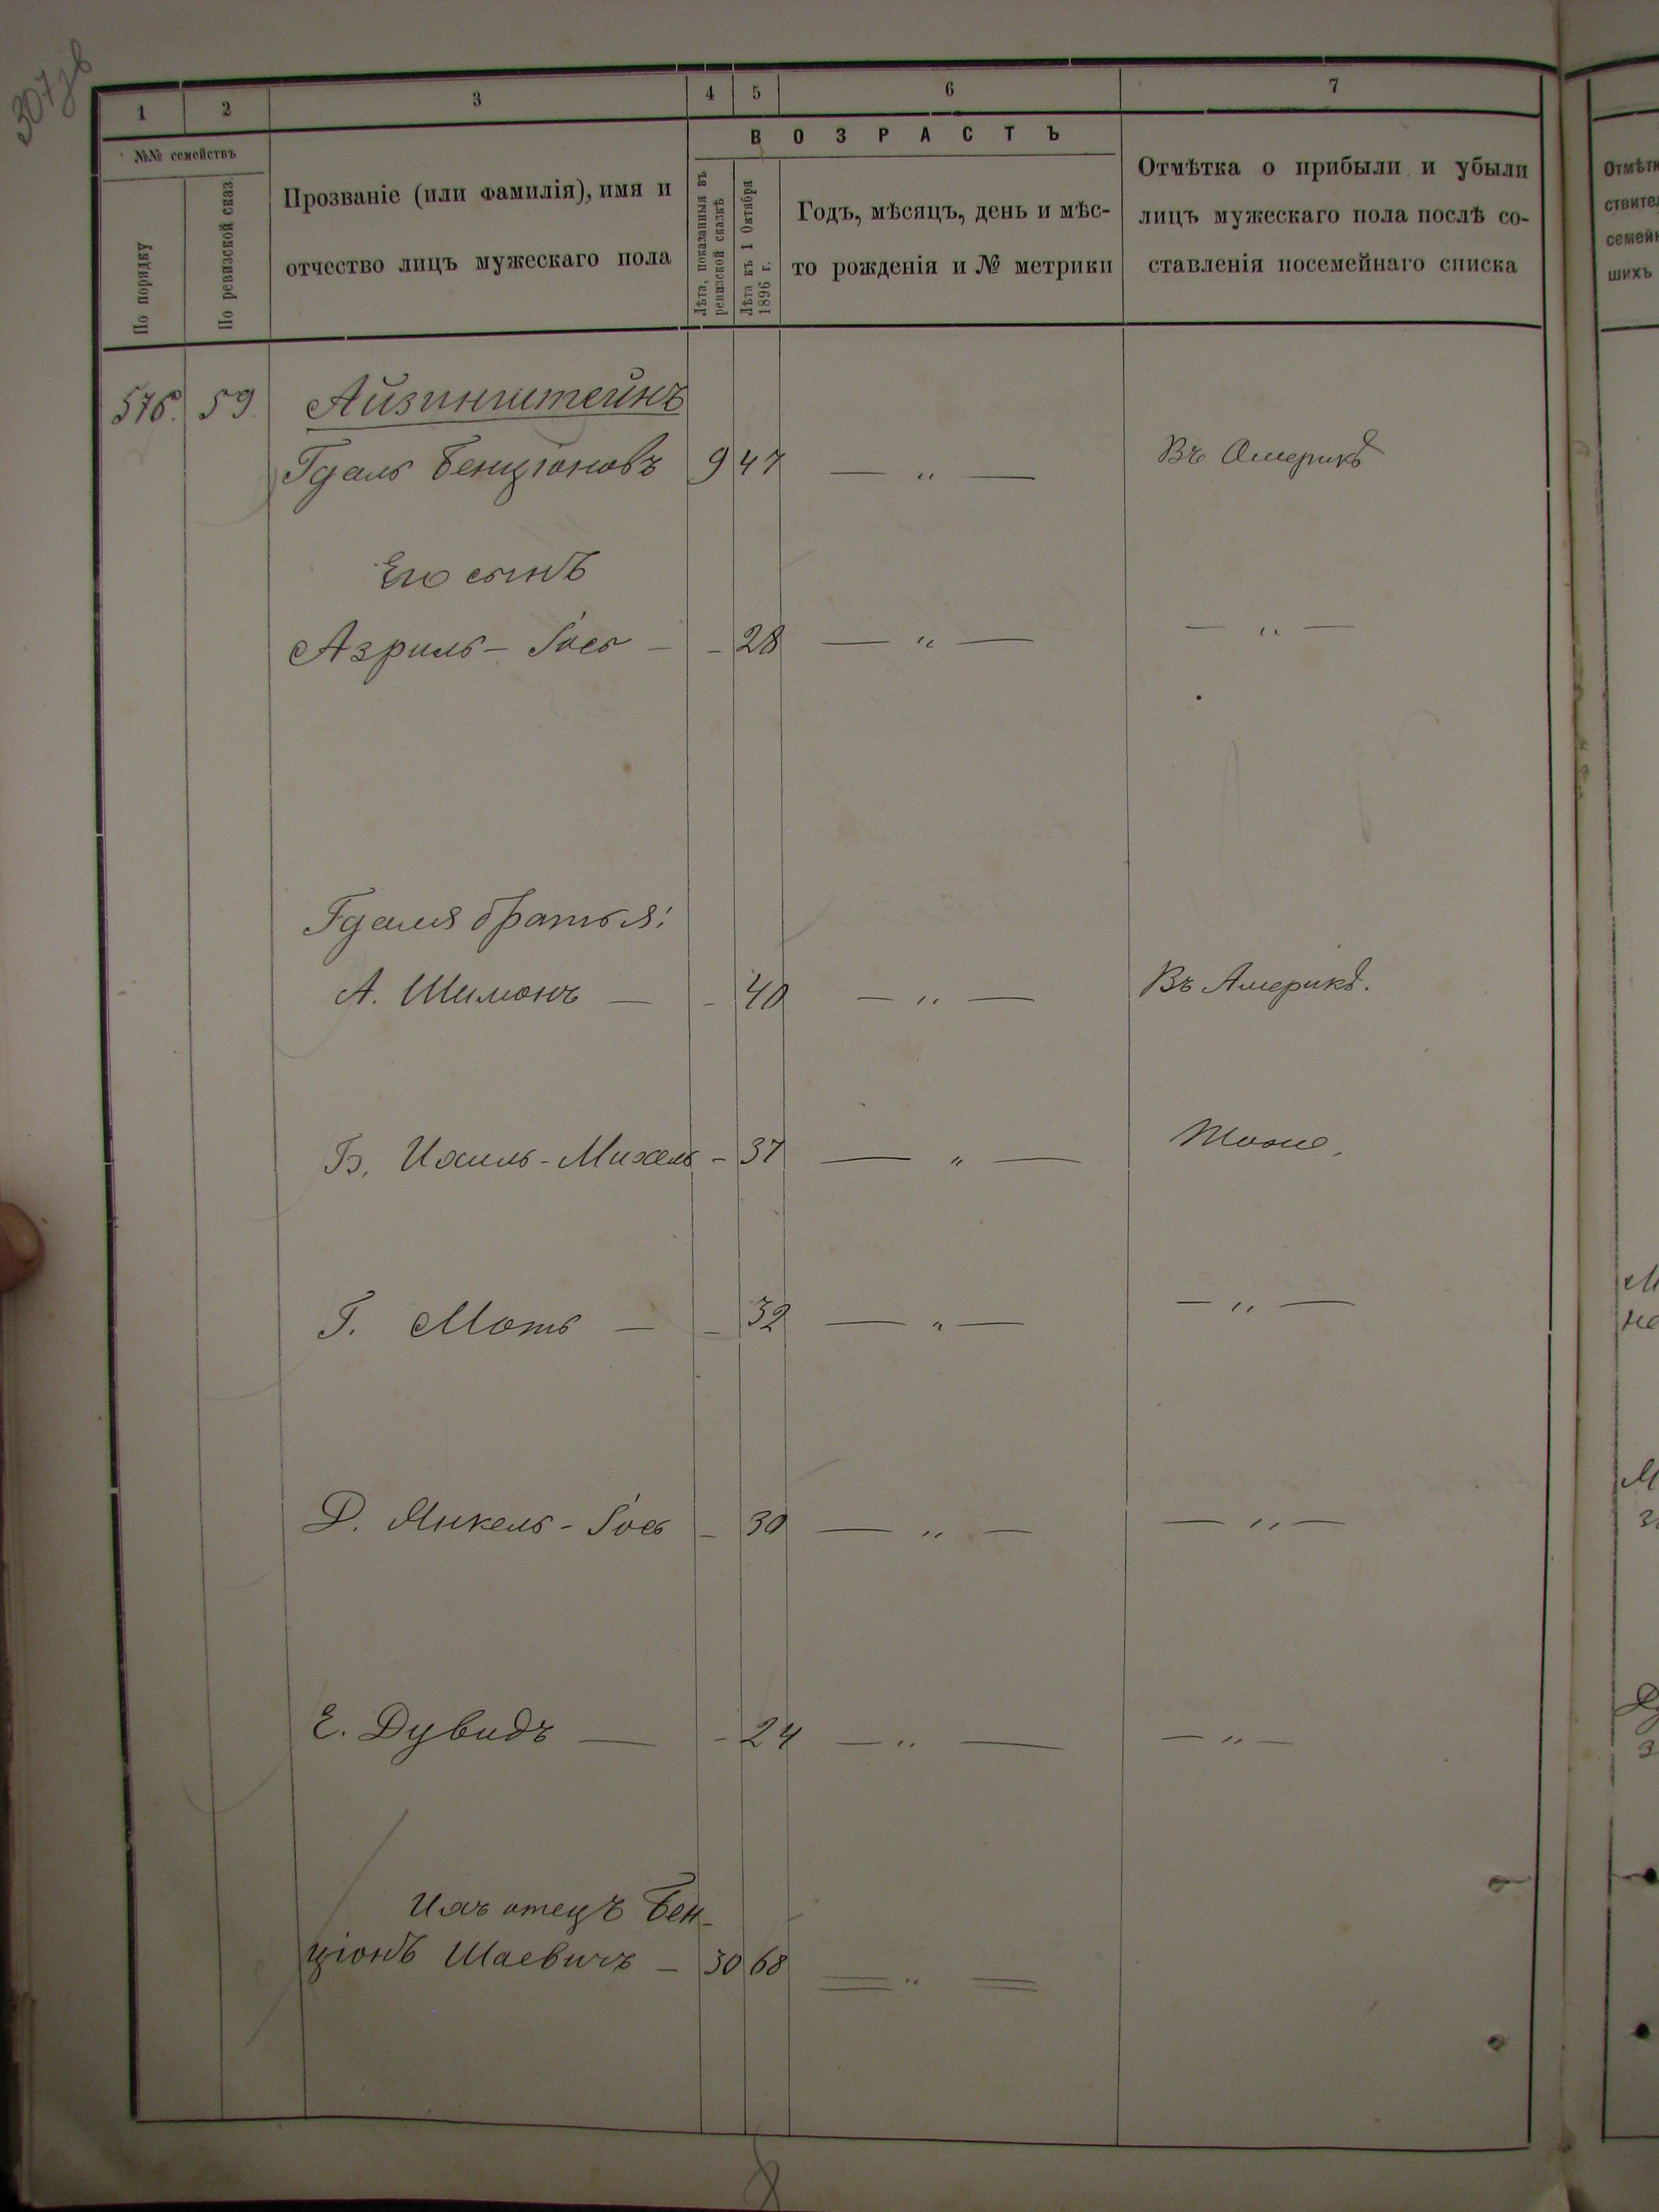 307зв
1 2 3 4 5 6 7
№№ семействъ
По порядку
По ревизской сказ.
Прозваніе (или фамилія), имя и
отчество лицъ мужескаго пола
ВОЗРАСТЪ
Лѣта, показанныя въ
ревизской сказкѣ
Лѣта къ 1 Октября
1896 г.
Годъ, мѣсяцъ, день и мѣс-
то рожденія и № метрики
Отмѣтка о прибыли и убыли
лицъ мужескаго пола послѣ со-
ставленія посемейнаго списка
576. 59. Айзинштейнъ
Гдаль Бенціоновъ 9 47 — „ — Въ Америкѣ
Его сынъ
Азриль - Іось — - 28 — „ — — „ —
Гдаля братья:
А. Шимонъ — - 40 — „ — Въ Америкѣ.
Б. Ихиль - Михель - 37 — „ — Тоже.
Г. Моть — - 32 — „ — — „ —
Д. Янкель - Іось - 30 — „ — — „ —
Е. Дувидъ — - 24 — „ — — „ —
Ихъ отецъ Бен-
ціонъ Шаевичъ — 30 68 — „ —
Отмѣтк
ствител
семейн
шихъ